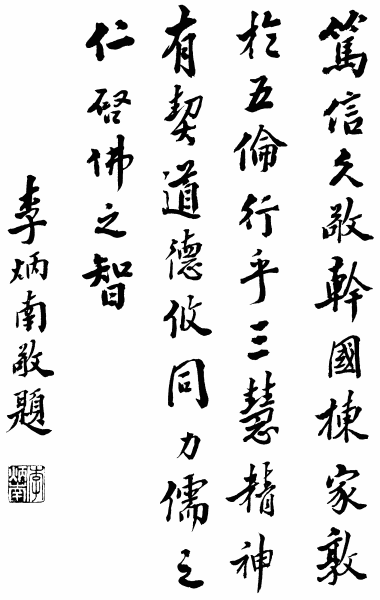 篤信久敬幹國棟家敦
於五倫行乎三慧精神
有契道德攸同力儒之
仁啓佛之智
李炳南敬題
李炳南